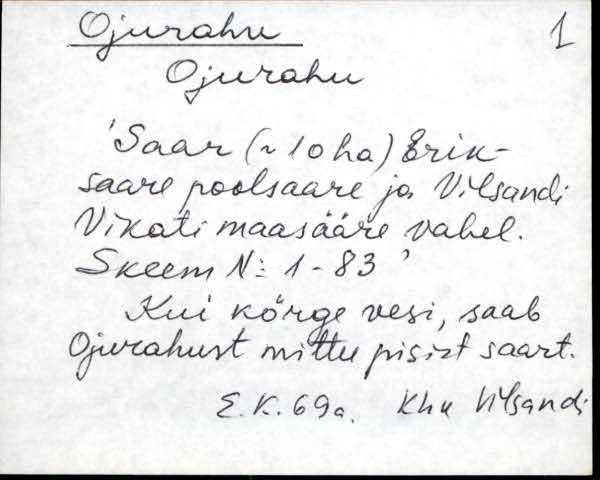 Ojurahu 1
Ojurahu
'Saar (~10 ha) Erik-
saare poolsaare ja Vilsandi
Vikati maasääre vahel.
Skeem N: 1-83'
Kui kõrge vesi, saab
Ojurahust mittu pisist saart.
E.K. 69a. Khk Vilsandi